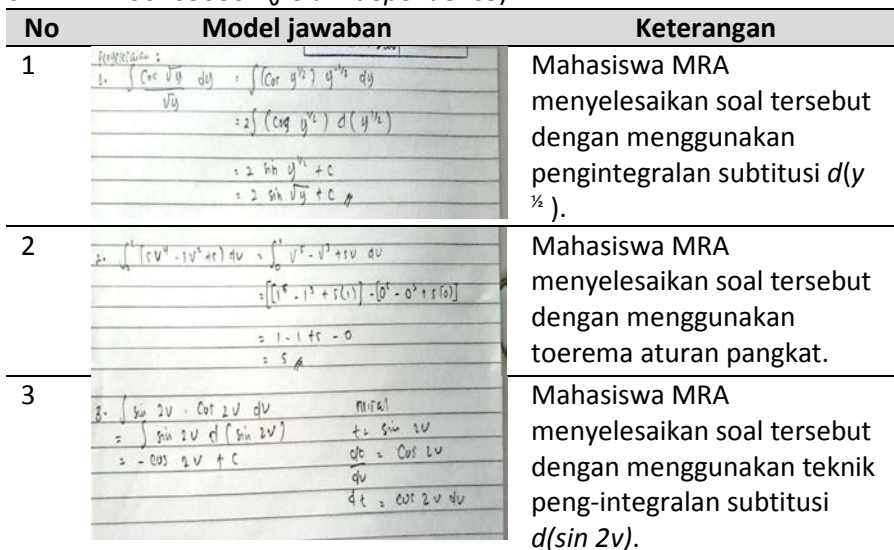 No Model jawaban Keterangan
1
Penyelesaian :
1. ∫ Cos √y / √y dy = ∫ (Cos y^½) y^-½ dy
= 2∫ (cos y^½) d (y^½)
= 2 sin y^½ + c
= 2 sin √y + c
Mahasiswa MRA
menyelesaikan soal tersebut
dengan menggunakan
pengintegralan subtitusi d(y
½ ).
2
2. ∫₀¹ [5v⁴ - 3v² + 5) dv = ∫₀¹ v⁵ - v³ + 5v dv
= [[1⁵ - 1³ + 5(1)] - [0⁵ - 0³ + 5(0)]
= 1 - 1 + 5 - 0
= 5
Mahasiswa MRA
menyelesaikan soal tersebut
dengan menggunakan
toerema aturan pangkat.
3
3. ∫ sin 2v . Cos 2v dv
= ∫ sin 2v d (sin 2v)
= - cos 2v + C
misal
t = sin 2v
dt / dv = Cos 2v
dt = cos 2v dv
Mahasiswa MRA
menyelesaikan soal tersebut
dengan menggunakan teknik
peng-integralan subtitusi
d(sin 2v).